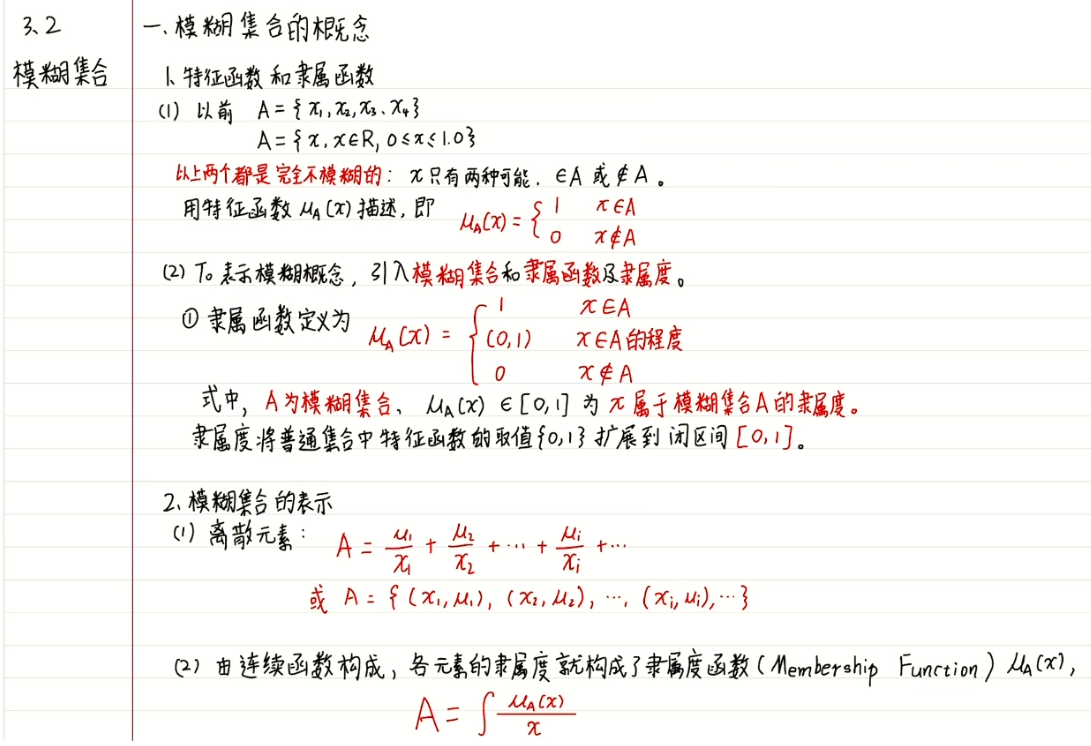 3.2
模糊集合
一.模糊集合的概念
1.特征函数和隶属函数
(1) 以前 A={x₁,x₂,x₃、x₄}
A={x,x∈R,0≤x≤1.0}
以上两个都是完全不模糊的：x只有两种可能.∈A或∉A。
用特征函数μ_A(x)描述,即 μ_A(x)={1 x∈A
0 x∉A
(2) To 表示模糊概念，引入模糊集合和隶属函数及隶属度。
① 隶属函数定义为 μ_A(x)={1 x∈A
(0,1) x∈A的程度
0 x∉A
式中，A为模糊集合、μ_A(x)∈[0,1]为x属于模糊集合A的隶属度。
隶属度将普通集合中特征函数的取值{0,1}扩展到闭区间[0,1]。
2.模糊集合的表示
(1) 离散元素： A=μ₁/x₁+μ₂/x₂+…+μᵢ/xᵢ+…
或 A={(x₁,μ₁),(x₂,μ₂),…,(xᵢ,μᵢ),…}
(2) 由连续函数构成，各元素的隶属度就构成了隶属度函数(Membership Function) μ_A(x),
A=∫μ_A(x)/x